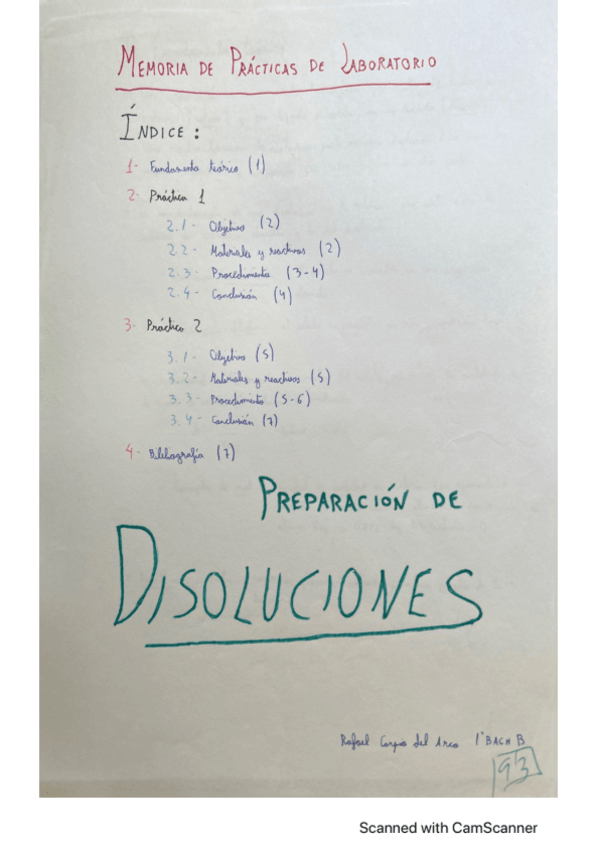 MEMORIA DE PRÁCTICAS DE LABORATORIO
ÍNDICE :
1- Fundamento teórico (1)
2- Práctica 1
2.1- Objetivo (2)
2.2- Materiales y reactivos (2)
2.3- Procedimiento (3-4)
2.4- Conclusión (4)
3- Práctica 2
3.1- Objetivo (5)
3.2- Materiales y reactivos (5)
3.3- Procedimiento (5-6)
3.4- Conclusión (7)
4- Bibliografía (7)
PREPARACIÓN DE
DISOLUCIONES
Rafael del Arco 1º BACH B
93
Scanned with CamScanner